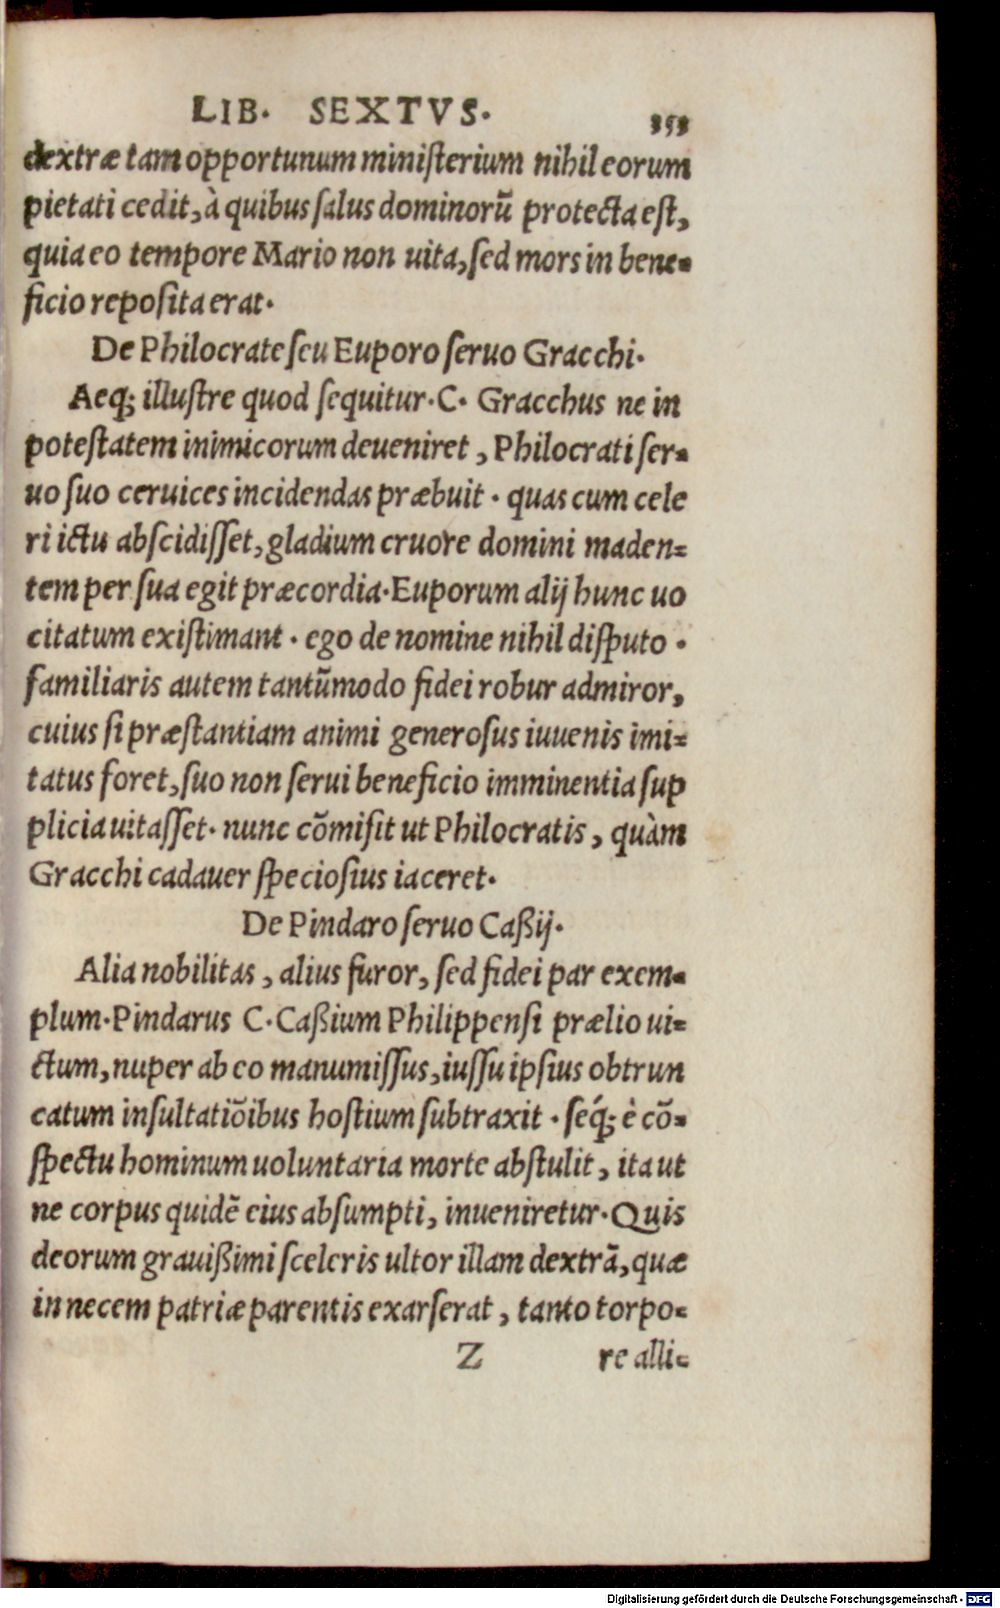 LIB. SEXTVS.
353
dextræ tam opportunum miniſterium nihil eorum
pietati cedit, à quibus ſalus dominorũ protecta eſt,
quia eo tempore Mario non uita, ſed mors in bene-
ficio repoſita erat.
De Philocrate ſeu Euporo ſeruo Gracchi.
Aeq; illuſtre quod ſequitur. C. Gracchus ne in
poteſtatem inimicorum deueniret, Philocrati ſer-
uo ſuo ceruices incidendas præbuit. quas cum cele
ri ictu abſcidiſſet, gladium cruore domini maden-
tem per ſua egit præcordia. Euporum alij hunc uo
citatum exiſtimant. ego de nomine nihil diſputo.
familiaris autem tantũmodo fidei robur admiror,
cuius ſi præſtantiam animi generoſus iuuenis imi-
tatus foret, ſuo non ſerui beneficio imminentia ſup
plicia uitaſſet. nunc cõmiſit ut Philocratis, quàm
Gracchi cadauer ſpecioſius iaceret.
De Pindaro ſeruo Caßij.
Alia nobilitas, alius furor, ſed fidei par exem-
plum. Pindarus C. Caßium Philippenſi prælio ui-
ctum, nuper ab eo manumiſſus, iuſſu ipſius obtrun
catum inſultatiõibus hoſtium ſubtraxit. ſeq́; è cõ-
ſpectu hominum uoluntaria morte abſtulit, ita ut
ne corpus quidẽ eius abſumpti, inueniretur. Quis
deorum grauißimi ſceleris ultor illam dextrã, quæ
in necem patriæ parentis exarſerat, tanto torpo-
Z re alli-
Digitalisierung gefördert durch die Deutsche Forschungsgemeinschaft - DFG